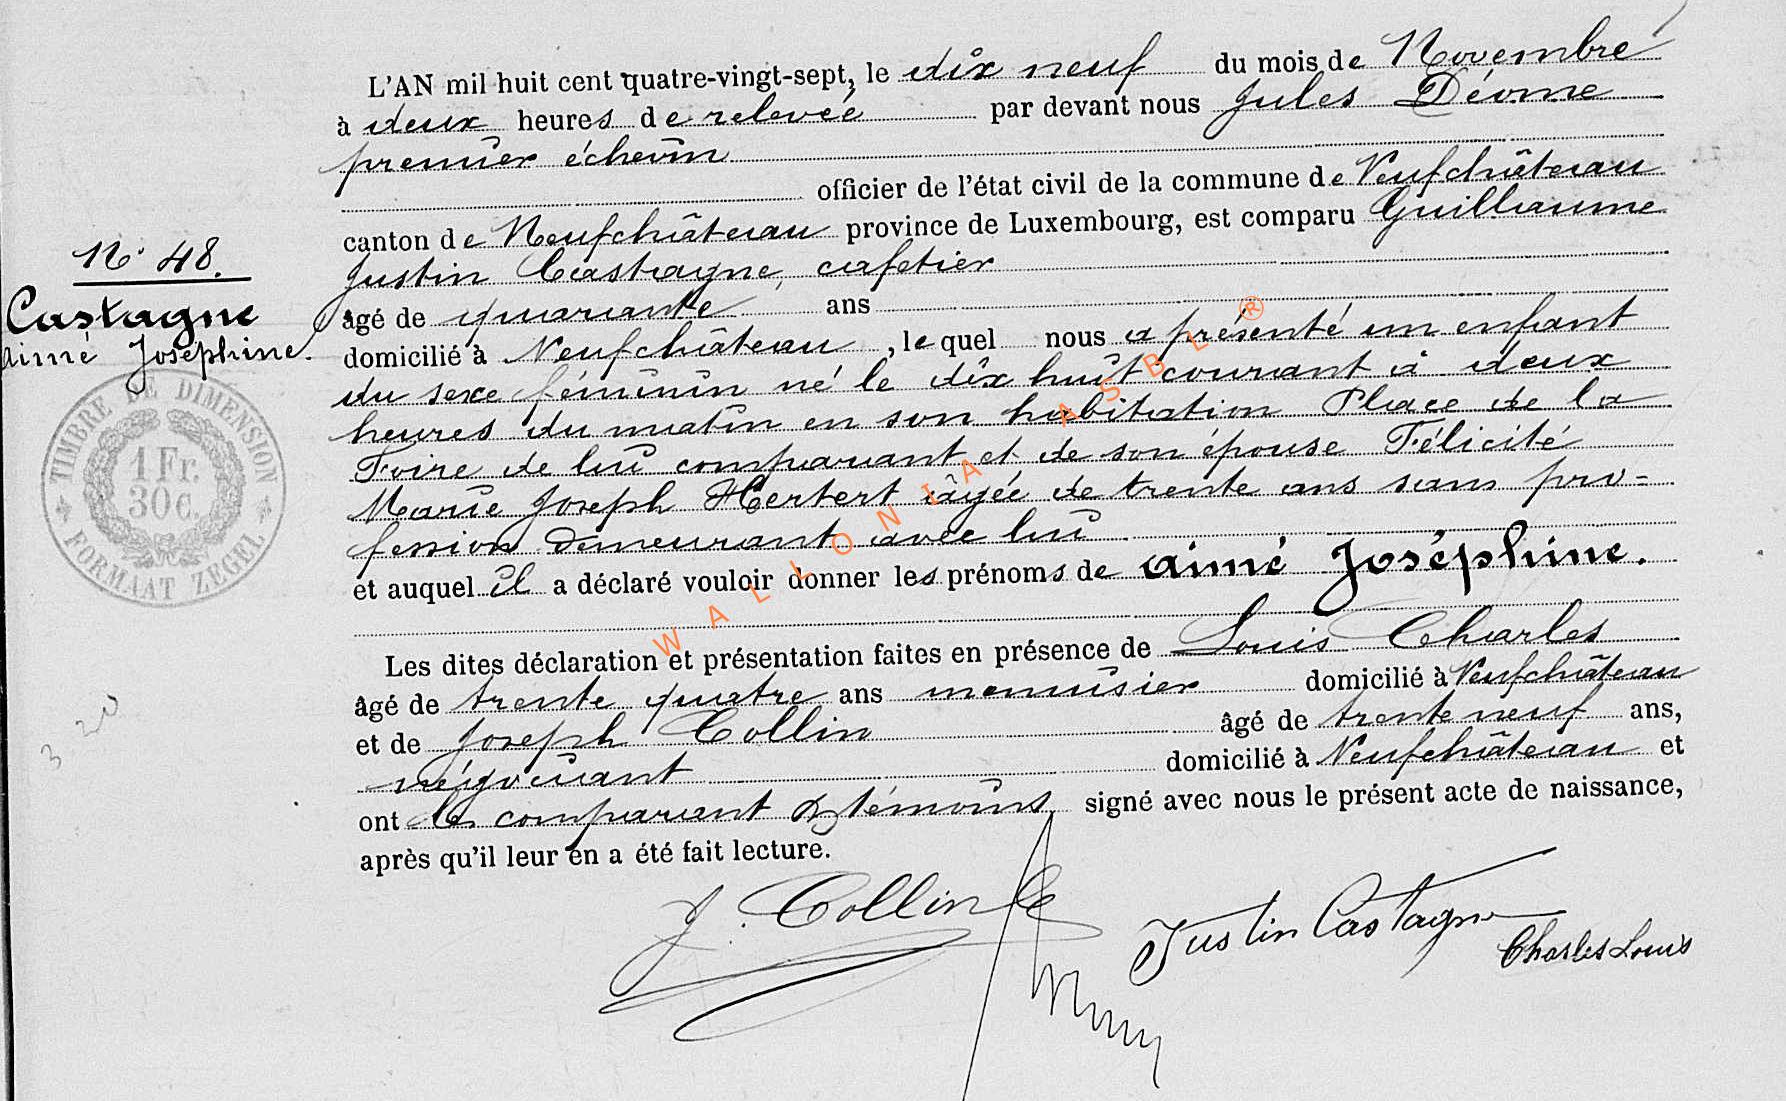 L'AN mil huit cent quatre-vingt-sept, le dix neuf du mois de Novembre
à deux heures de relevée par devant nous Jules Déome
premier échevin
officier de l'état civil de la commune de Neufchâteau
canton de Neufchâteau province de Luxembourg, est comparu Guillaume
N° 48.
Justin Castagne, cafetier
Castagne
âgé de quarante ans
aimé Joséphine.
domicilié à Neufchâteau, lequel nous a présenté un enfant
du sexe féminin né le dix huit courant à deux
heures du matin en son habitation Place de la
Foire de lui comparant et de son épouse Félicité
Marie Joseph Herbert âgée de trente ans sans pro=
fession demeurant avec lui
et auquel il a déclaré vouloir donner les prénoms de aimé Joséphine.
TIMBRE DE DIMENSION
1 Fr.
30 c.
FORMAAT ZEGEL
Les dites déclaration et présentation faites en présence de Louis Charles
âgé de trente quatre ans menuisier domicilié à Neufchâteau
et de Joseph Collin âgé de trente neuf ans,
négociant domicilié à Neufchâteau et
ont le comparant & témoins signé avec nous le présent acte de naissance,
après qu'il leur en a été fait lecture.
3 20
J. Collin
Justin Castagne
Charles Louis
WALLONIA ASBL ®